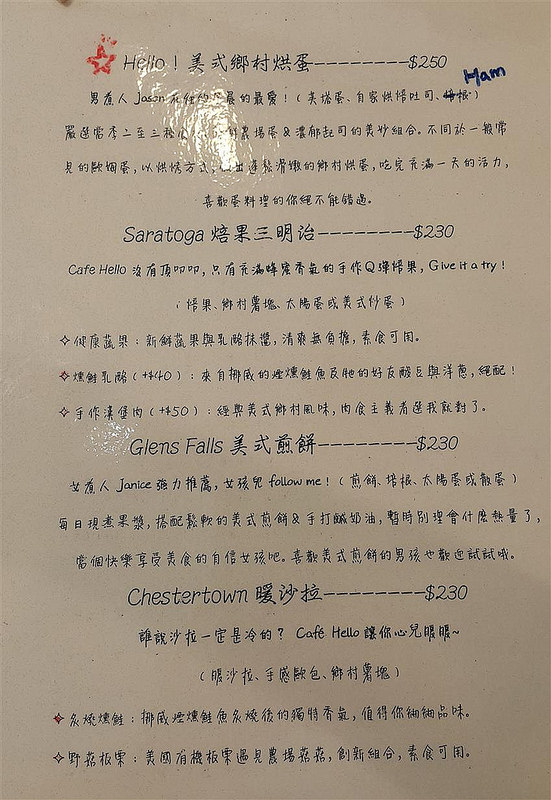 Hello！美式鄉村烘蛋---------$250
Ham
男煮人 Jason 的最愛！（美塔蛋、自家烘焙吐司、培根）
嚴選當季二至三種 農場蛋＆濃郁起司的美妙組合。不同於一般常
見的歐姆蛋，以烘烤方式， 出蓬鬆滑嫩的鄉村烘蛋，吃完充滿一天的活力，
喜歡蛋料理的你絕不能錯過。
Saratoga 焙果三明治---------$230
Cafe Hello 沒有頂叩叩，只有充滿蜂蜜香氣的手作Q彈焙果，Give it a try！
（焙果、鄉村薯塊、太陽蛋或美式炒蛋）
✧健康蔬果：新鮮蔬果與乳酪抹醬，清爽無負擔，素食可用。
✧燻鮭乳酪（+$40）：來自挪威的煙燻鮭魚及牠的好友酸豆與洋蔥，絕配！
✧手作漢堡肉（+$50）：經典美式鄉村風味，肉食主義者選我就對了。
Glens Falls 美式煎餅---------$230
女煮人 Janice 強力推薦，女孩兒 follow me！（煎餅、培根、太陽蛋或散蛋）
每日現煮果漿，搭配鬆軟的美式煎餅＆手打鹹奶油，暫時別理會什麼熱量了，
當個快樂享受美食的自信女孩吧。喜歡美式煎餅的男孩也歡迎試試哦。
Chestertown 暖沙拉---------$230
誰說沙拉一定是冷的？ Café Hello 讓你心兒暖暖~
（暖沙拉、手感歐包、鄉村薯塊）
✧炙燒燻鮭：挪威煙燻鮭魚炙燒後的獨特香氣，值得你細細品味。
✧野菇板栗：美國有機板栗遇見農場菇菇，創新組合，素食可用。